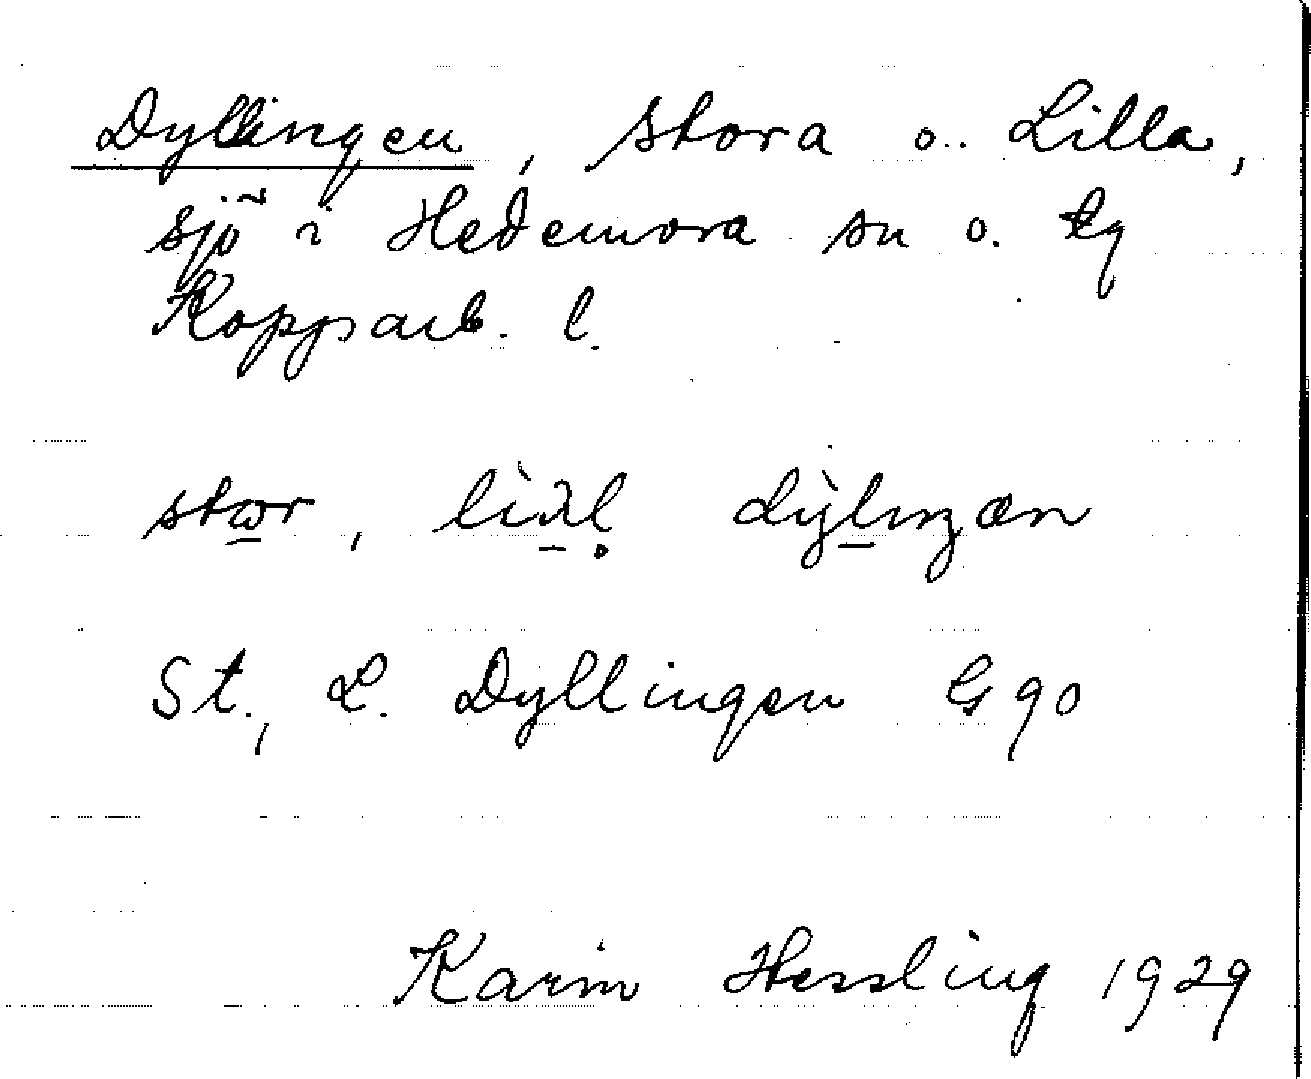 Dyllingen, Stora o. Lilla,
sjö i Hedemora sn o. tg
Kopparb. l.
St., L. Dyllingen G 90
Karin Hessling 1929